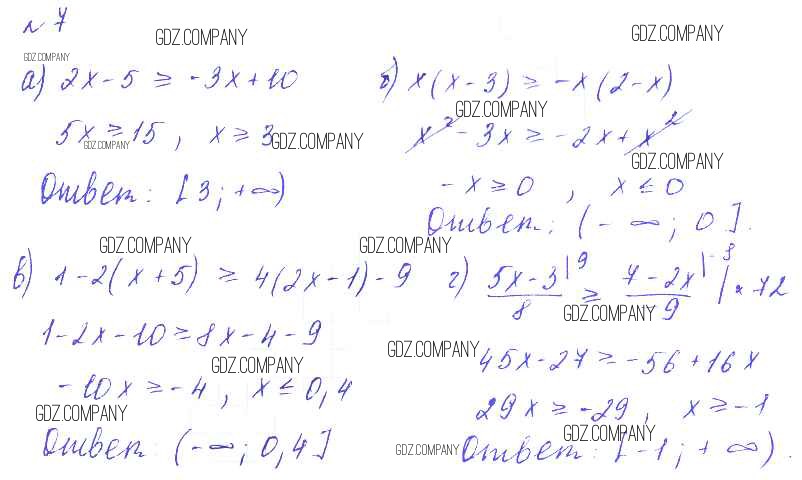 № 7
GDZ.COMPANY
GDZ.COMPANY
GDZ.COMPANY
а) 2x - 5 ≥ -3x + 10
5x ≥ 15, x ≥ 3
GDZ.COMPANY
GDZ.COMPANY
Ответ: [3; +∞)
б) x(x - 3) ≥ -x(2 - x)
GDZ.COMPANY
x² - 3x ≥ -2x + x²
GDZ.COMPANY
-x ≥ 0, x ≤ 0
Ответ: (-∞; 0].
GDZ.COMPANY
GDZ.COMPANY
в) 1 - 2(x + 5) ≥ 4(2x - 1) - 9
1 - 2x - 10 ≥ 8x - 4 - 9
GDZ.COMPANY
-10x ≥ -4, x ≤ 0,4
GDZ.COMPANY
Ответ: (-∞; 0,4]
г) (5x - 3)/8 |9 ≥ (7 - 2x)/9 |-8 | × 72
GDZ.COMPANY
GDZ.COMPANY
45x - 27 ≥ -56 + 16x
29x ≥ -29, x ≥ -1
GDZ.COMPANY
GDZ.COMPANY
Ответ: [-1; +∞).